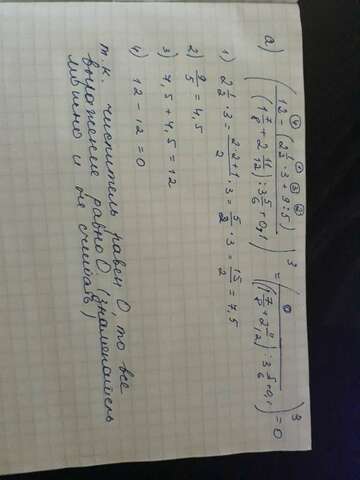 а) ( (12 - (2 1/2 · 3 + 9 : 5)) / ((1 7/8 + 2 11/12) : 3 5/6 + 0,1) )³ = ( 0 / ((1 7/8 + 2 11/12) · 3 5/6 + 0,1) )³ = 0
1) 2 1/2 · 3 = (2·2+1)/2 · 3 = 5/2 · 3 = 15/2 = 7,5
2) 9/5 = 4,5
3) 7,5 + 4,5 = 12
4) 12 - 12 = 0
т.к. числитель равен 0, то все
выражение равно 0 (знаменатель
можно и не считать)